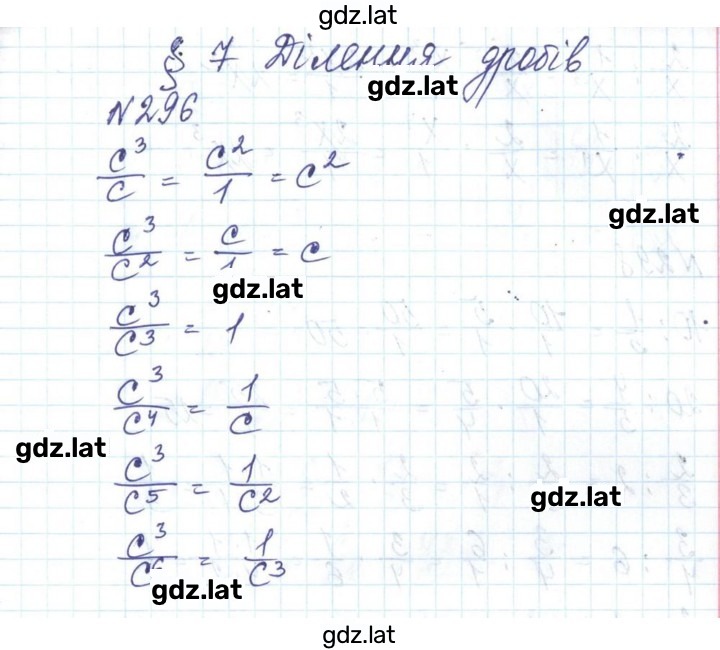 gdz.lat
§ 7 Ділення дробів
gdz.lat
N296
c³/c = c²/1 = c²
gdz.lat
c³/c² = c/1 = c
gdz.lat
c³/c³ = 1
c³/c⁴ = 1/c
gdz.lat
c³/c⁵ = 1/c²
gdz.lat
c³/c⁶ = 1/c³
gdz.lat
gdz.lat